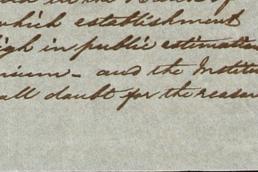 which establishment
high in public estimation
and the Institu
all doubt for the reason